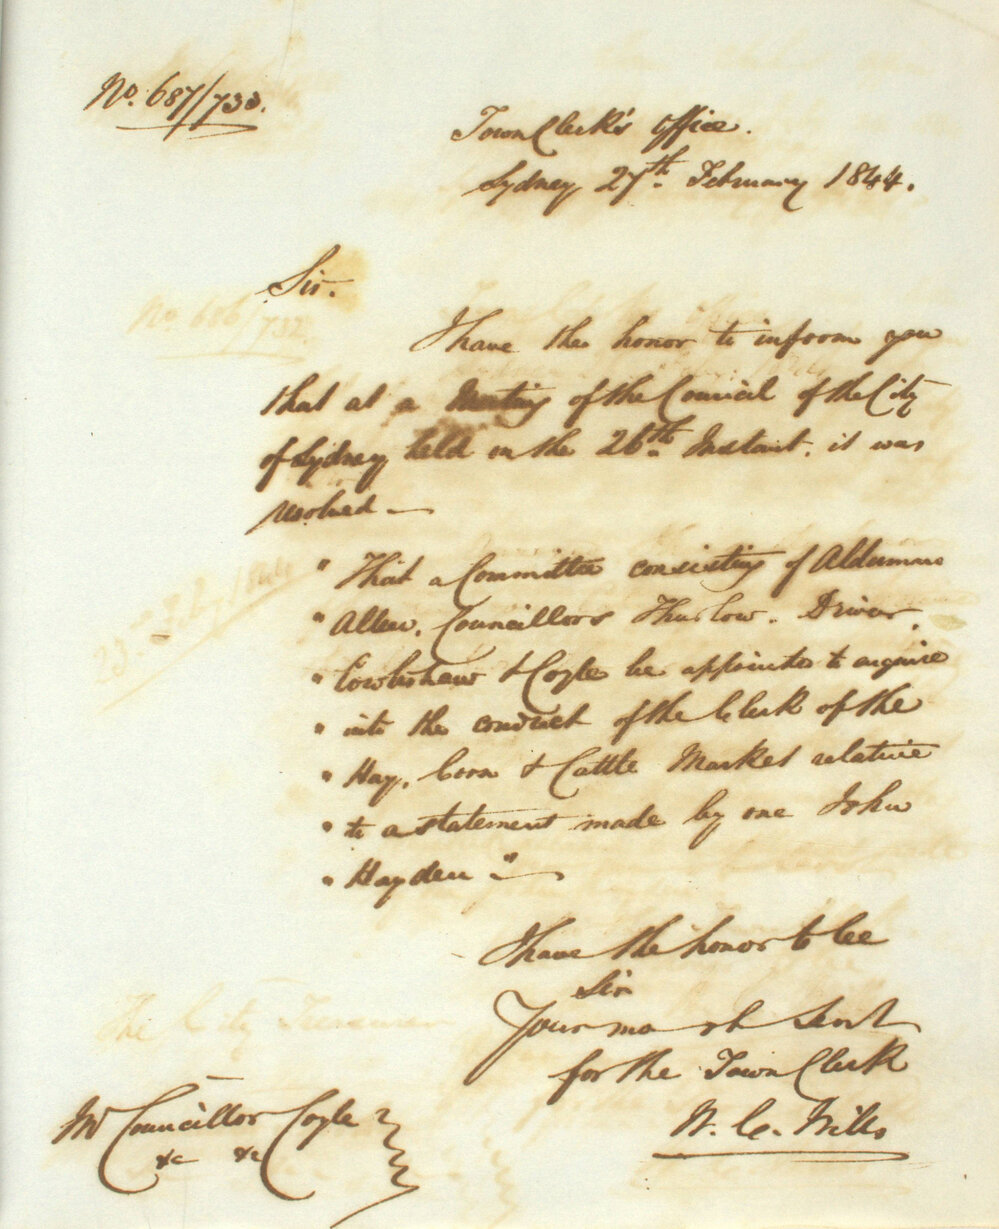 No. 687/733.
Town Clerk's Office.
Sydney 27th. February 1844.
Sir.
I have the honor to inform you
that at a Meeting of the Council of the City
of Sydney held on the 26th. Instant. it was
resolved —
" That a Committee consisting of Aldermen
" Allen, Councillors Thurlow. Driver,
" Cowlishaw & Coyle be appointed to enquire
" into the conduct of the Clerk of the
" Hay, Corn & Cattle Market relative
" to a statement made by one John
" Hayden " —
I have the honor to be
Sir
Your mo ob Servt
for the Town Clerk
W. C. Wills
Mr Councillor Coyle
&c &c
No. 686/732.
23rd Feby 1844
The City Treasurer